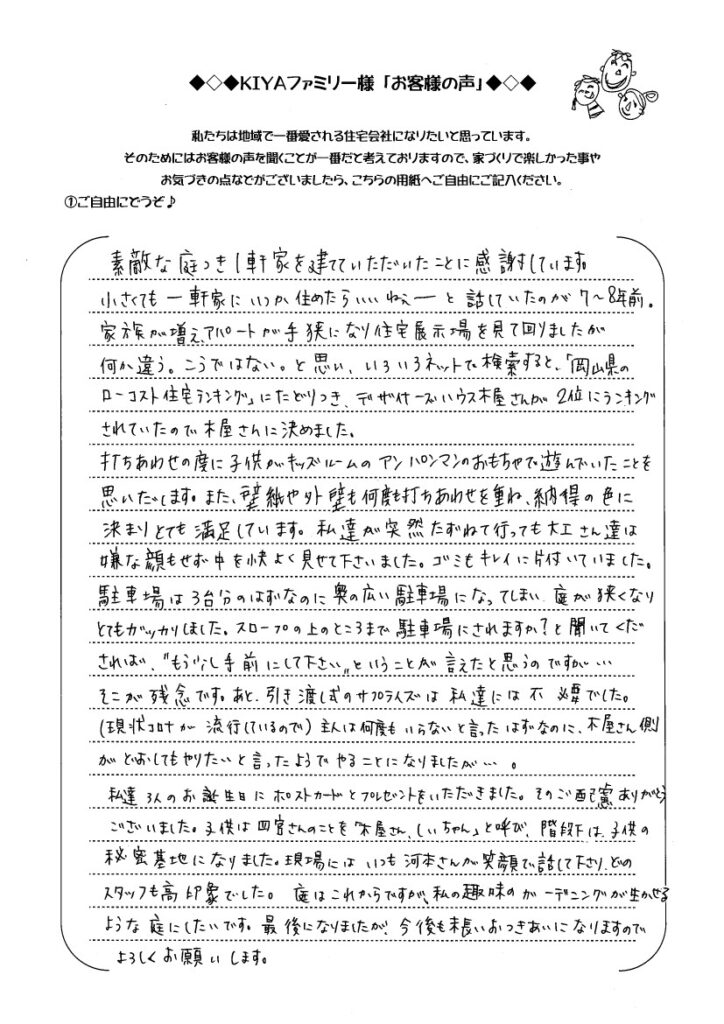 ◆◇◆KIYAファミリー様「お客様の声」◆◇◆
私たちは地域で一番愛される住宅会社になりたいと思っています。
そのためにはお客様の声を聞くことが一番だと考えておりますので、家づくりで楽しかった事や
お気づきの点などがございましたら、こちらの用紙へご自由にご記入ください。
①ご自由にどうぞ♪
素敵な庭つき1軒家を建てていただいたことに感謝しています。
小さくても一軒家にいつか住めたらいいねぇーと話していたのが7〜8年前。
家族が増え、アパートが手狭になり住宅展示場を見て回りましたが
何か違う。こうではない。と思い、いろいろネットで検索すると、「岡山県の
ローコスト住宅ランキング」にたどりつき、デザイナーズハウス木屋さんが2位にランキング
されていたので木屋さんに決めました。
打ちあわせの度に子供がキッズルームのアンパンマンのおもちゃで遊んでいたことを
思いだします。また、壁紙や外壁も何度も打ちあわせを重ね、納得の色に
決まりとても満足しています。私達が突然たずねて行っても大工さん達は
嫌な顔もせず中を快よく見せて下さいました。ゴミもキレイに片付いていました。
駐車場は3台分のはずなのに奥の広い駐車場になってしまい、庭が狭くなり
とてもガッカリしました。スロープの上のところまで駐車場にされますか?と聞いてくだ
されば、"もう少し手前にして下さい"ということが言えたと思うのですが…
そこが残念です。あと、引き渡し式のサプライズは私達には不必要でした。
(現状コロナが流行しているので)主人は何度もいらないと言ったはずなのに、木屋さん側
がどおしてもやりたいと言ったようでやることになりましたが…。
私達3人のお誕生日にポストカードとプレゼントをいただきました。そのご配慮ありがとう
ございました。子供は四宮さんのことを「木屋さん、しいちゃん」と呼び、階段下は、子供の
秘密基地になりました。現場にはいつも河本さんが笑顔で話して下さり、どの
スタッフも高印象でした。庭はこれからですが、私の趣味のガーデニングが生かせる
ような庭にしたいです。最後になりましたが、今後も末長いおつきあいになりますので
よろしくお願いします。